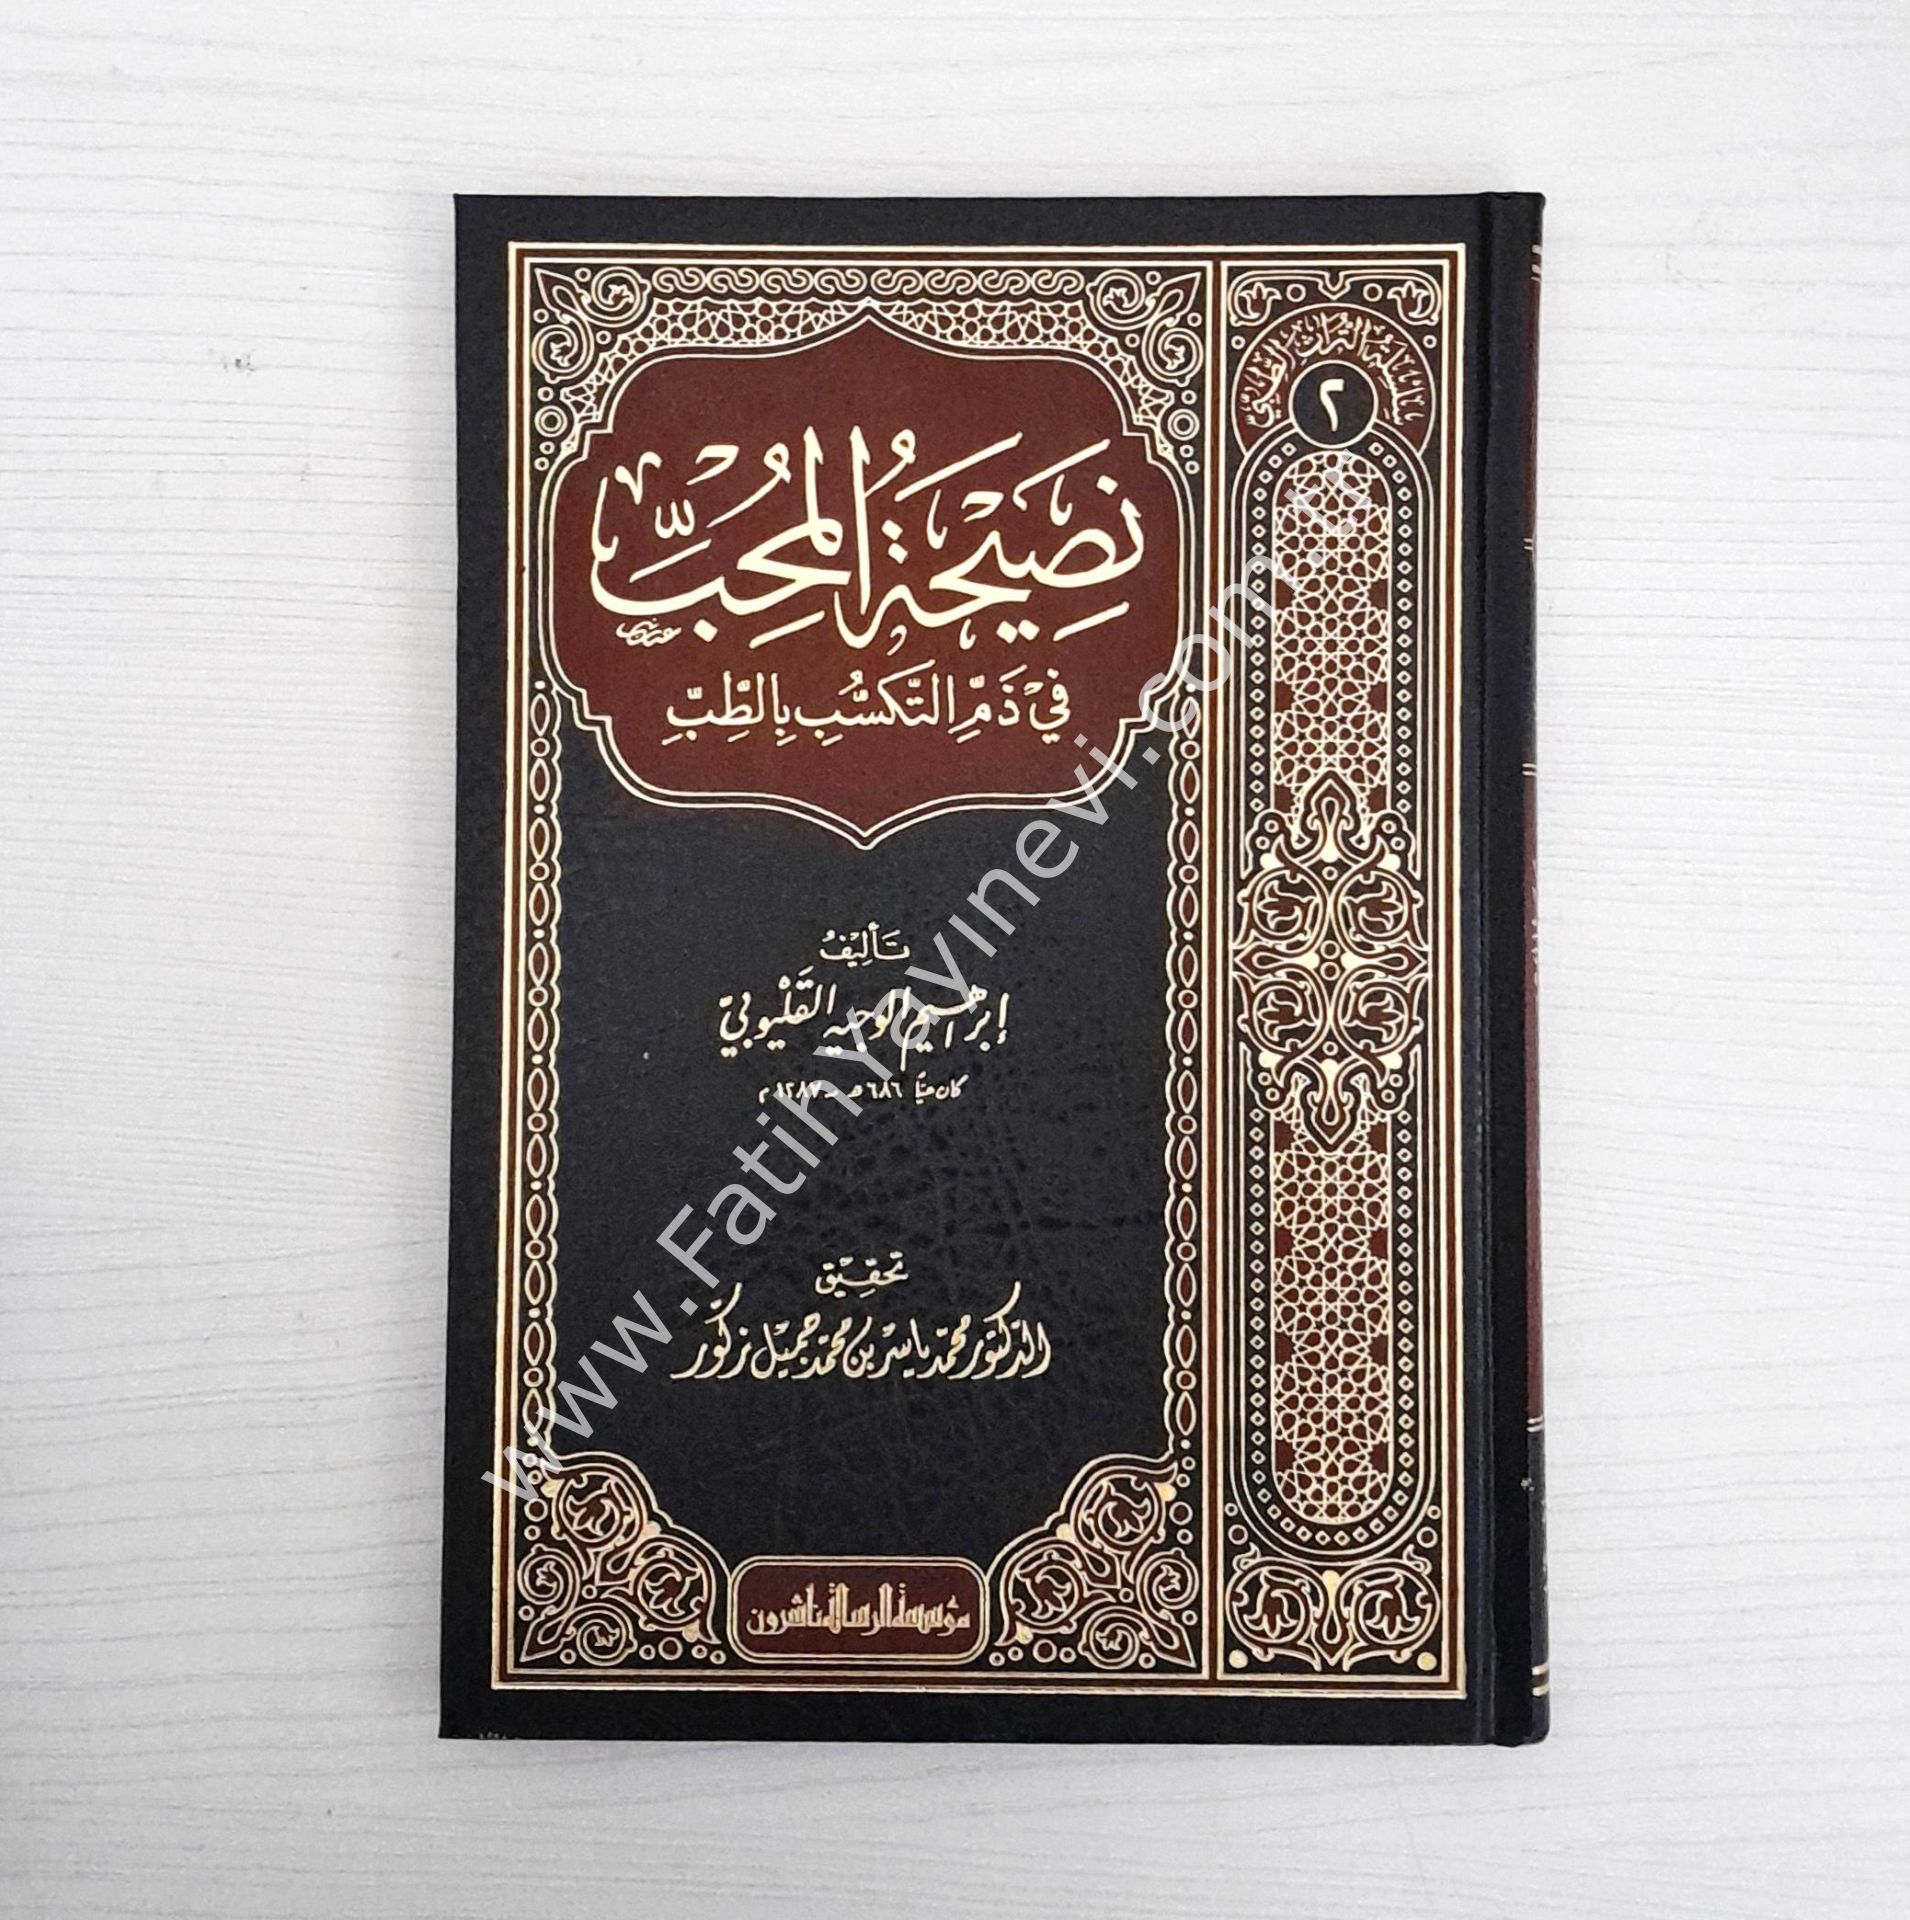 سلسلة التراث الطبي
٢
نَصِيْحَةُ المُحِبِّ
فِيْ ذَمِّ التَّكَسُّبِ بِالطِّبِّ
تَأليفُ
إبراهيم الوجيه القَلْيُوبيّ
كان حيًّا ٦٨٦ هـ - ١٢٨٧ م
تحقيق
الدكتور محمد ياسر بن محمد جميل زكّور
مؤسسة الرسالة ناشرون
www.FatihYayınevi.com.tr